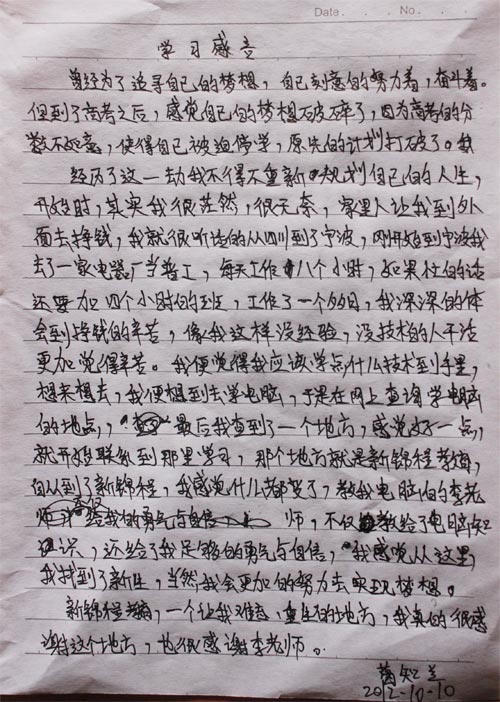 Date . . . No. . . .
学习感言
曾经为了追寻自己的梦想，自己刻意的努力着，奋斗着。
但到了高考之后，感觉自己的梦想破碎了，因为高考的分
数不如意，使得自己被迫停学，原先的计划打破了。
经历了这一劫我不得不重新规划自己的人生，
开始时，其实我很茫然，很无奈，家里人让我到外
面去挣钱，我就很听话的从四川到了宁波，刚开始到宁波我
去了一家电器厂当普工，每天工作八个小时，如果忙的话
还要加四个小时的班，工作了一个多月，我深深的体
会到挣钱的辛苦，像我这样没经验，没技术的人干活
更加觉得辛苦。我便觉得我应该学点什么技术到手里，
想来想去，我便想到去学电脑，于是在网上查询学电脑
的地点，最后我查到了一个地方，感觉好一点，
就开始联系到那里学习，那个地方就是新锦程教育，
自从到了新锦程，我感觉什么都变了，教我电脑的李老
师，不仅教给了电脑知
识，还给了我足够的勇气与自信，我感觉从这里，
我找到了新生，当然我会更加的努力去实现梦想。
新锦程教育，一个让我难忘、重生的地方，我真的很感
谢这个地方，也很感谢李老师。
2012-10-10